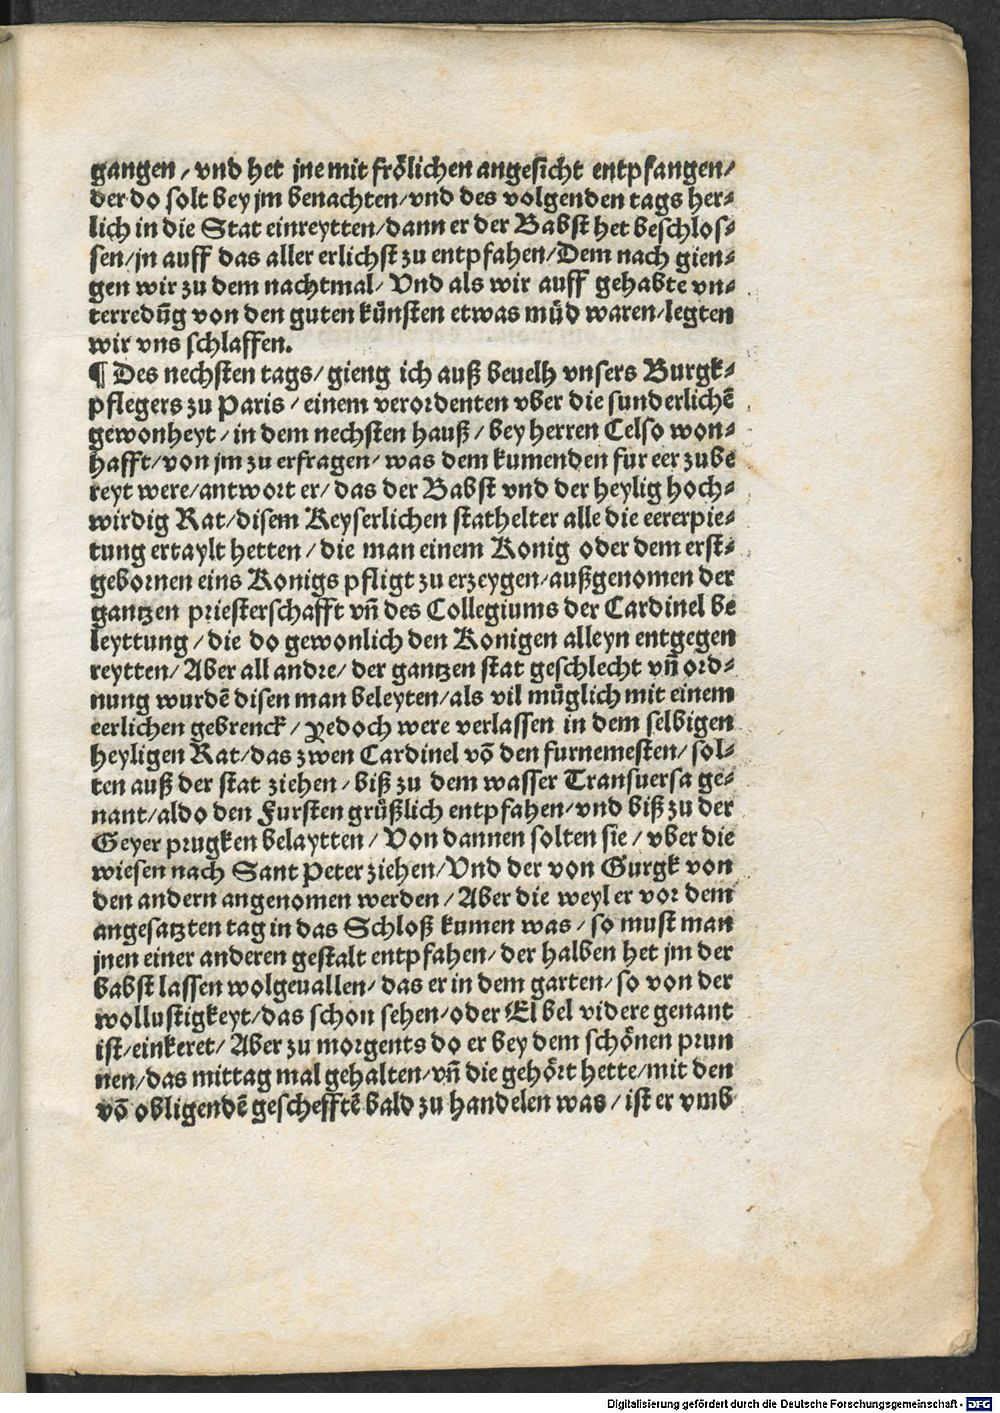 gangen / vnd het jne mit frölichen angesicht entpfangen/
der do solt bey jm benachten/vnd des volgenden tags her⸗
lich in die Stat einreytten/dann er der Babst het beschlos⸗
sen/jn auff das aller erlichst zu entpfahen/Dem nach gien⸗
gen wir zu dem nachtmal/ Vnd als wir auff gehabte vn⸗
terredūg von den guten künsten etwas müd waren/legten
wir vns schlaffen.
¶ Des nechsten tags/ gieng ich auß beuelh vnsers Burgk⸗
pflegers zu Paris / einem verordenten vber die sunderlichē
gewonheyt / in dem nechsten hauß / bey herren Celso won⸗
hafft/von jm zu erfragen/ was dem kumenden fur eer zube
reyt were/antwort er/ das der Babst vnd der heylig hoch⸗
wirdig Rat/disem Keyserlichen stathelter alle die eererpie⸗
tung ertaylt hetten / die man einem Konig oder dem erst⸗
gebornen eins Konigs pfligt zu erzeygen/außgenomen der
gantzen priesterschafft vn̄ des Collegiums der Cardinel be
leyttung / die do gewonlich den Konigen alleyn entgegen
reytten/ Aber all andre/ der gantzen stat geschlecht vn̄ ord⸗
nung wurdē disen man beleyten/als vil müglich mit einem
eerlichen gebrenck / yedoch were verlassen in dem selbigen
heyligen Rat/das zwen Cardinel vō den furnemesten/ sol⸗
ten auß der stat ziehen / biß zu dem wasser Transuersa ge⸗
nant/aldo den Fursten grüßlich entpfahen/vnd biß zu der
Geyer prugken belaytten / Von dannen solten sie / vber die
wiesen nach Sant Peter ziehen/Vnd der von Gurgk von
den andern angenomen werden / Aber die weyl er vor dem
angesatzten tag in das Schloß kumen was / so must man
jnen einer anderen gestalt entpfahen/ der halben het jm der
babst lassen wolgeuallen/ das er in dem garten/ so von der
wollustigkeyt/das schon sehen/oder El bel videre genant
ist/einkeret/ Aber zu morgents do er bey dem schönen prun
nen/das mittag mal gehalten/vn̄ die gehört hette/mit den
vō obligendē geschefftē bald zu handelen was / ist er vmb
Digitalisierung gefördert durch die Deutsche Forschungsgemeinschaft - DFG